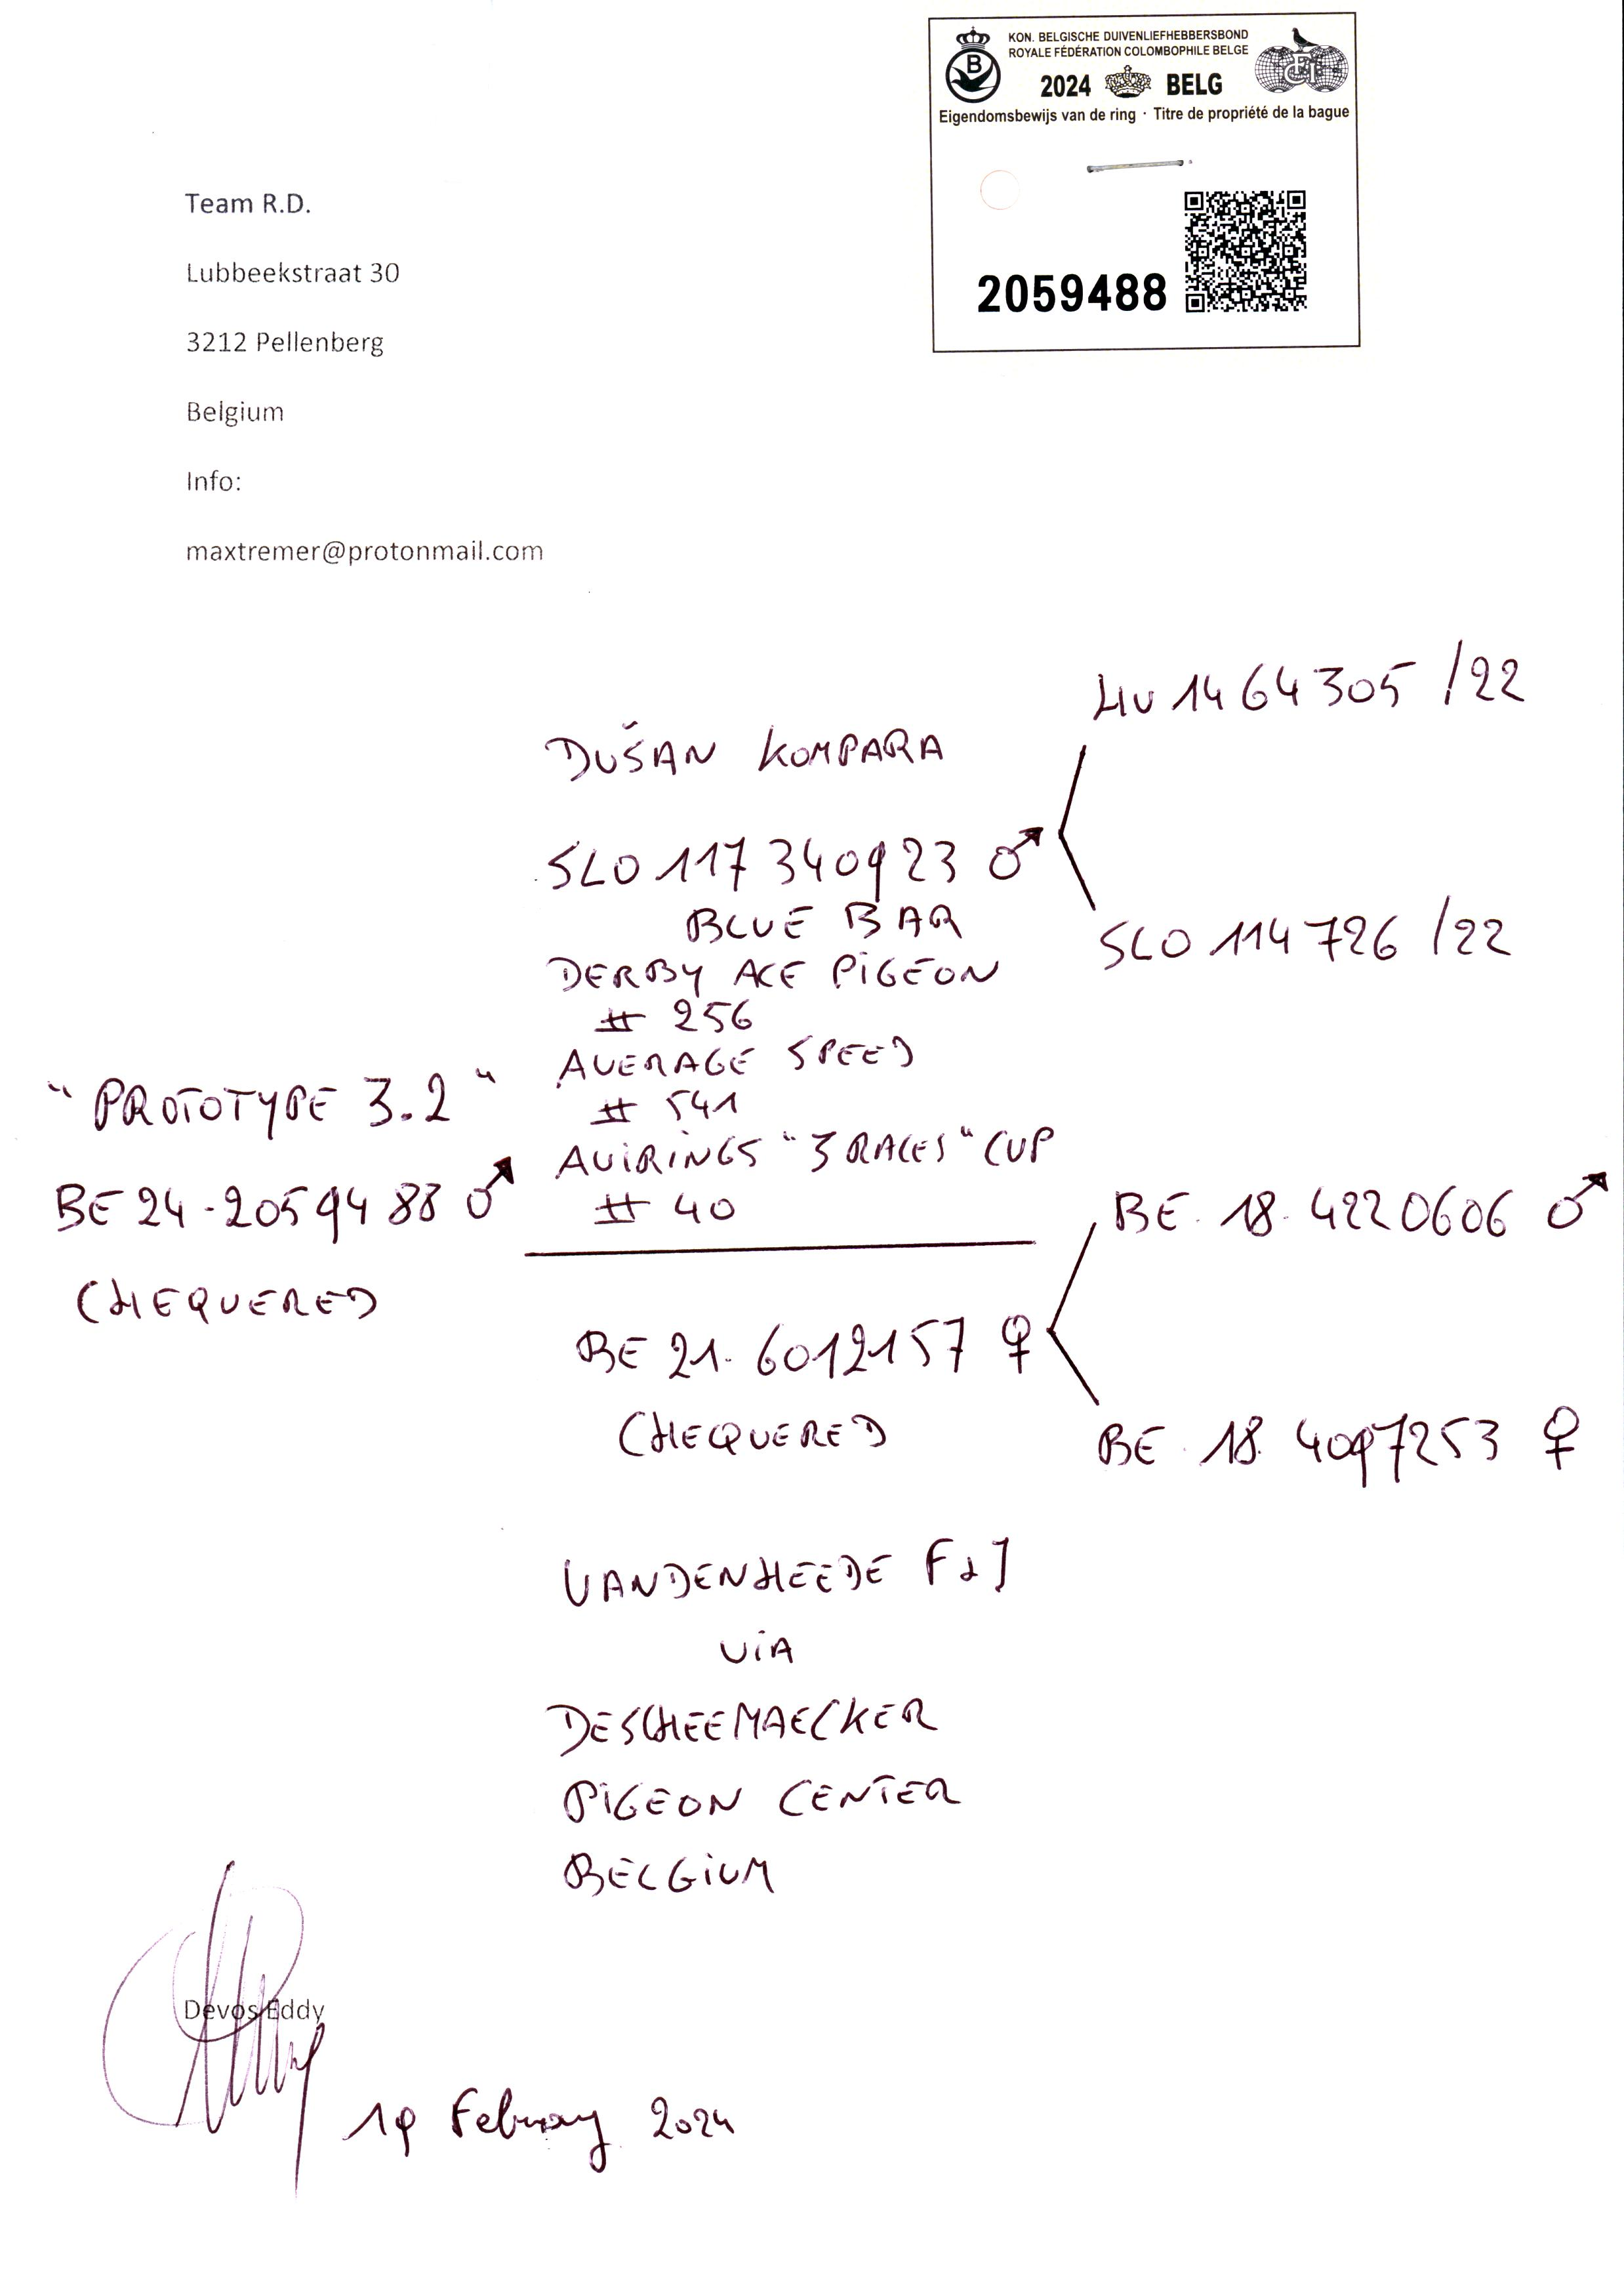 KON. BELGISCHE DUIVENLIEFHEBBERSBOND
ROYALE FÉDÉRATION COLOMBOPHILE BELGE
B
2024 BELG
Eigendomsbewijs van de ring · Titre de propriété de la bague
2059488
Team R.D.
Lubbeekstraat 30
3212 Pellenberg
Belgium
Info:
maxtremer@protonmail.com
DUŠAN KOMPARA
SLO 117 340923 ♂
BLUE BAR
DERBY ACE PIGEON
# 256
AVERAGE SPEED
# 541
AVIRINGS "3 RACES" CUP
# 40
1464305 /22
SLO 114726 /22
"PROTOTYPE 3.2"
BE 24-2059488 ♂
CHEQUERED
BE 21. 6012157 ♀
CHEQUERED
BE. 18. 4220606 ♂
BE. 18. 4097253 ♀
VANDENHEEDE F & J
VIA
DESCHEEMAECKER
PIGEON CENTER
BELGIUM
Devos Eddy
19 February 2024